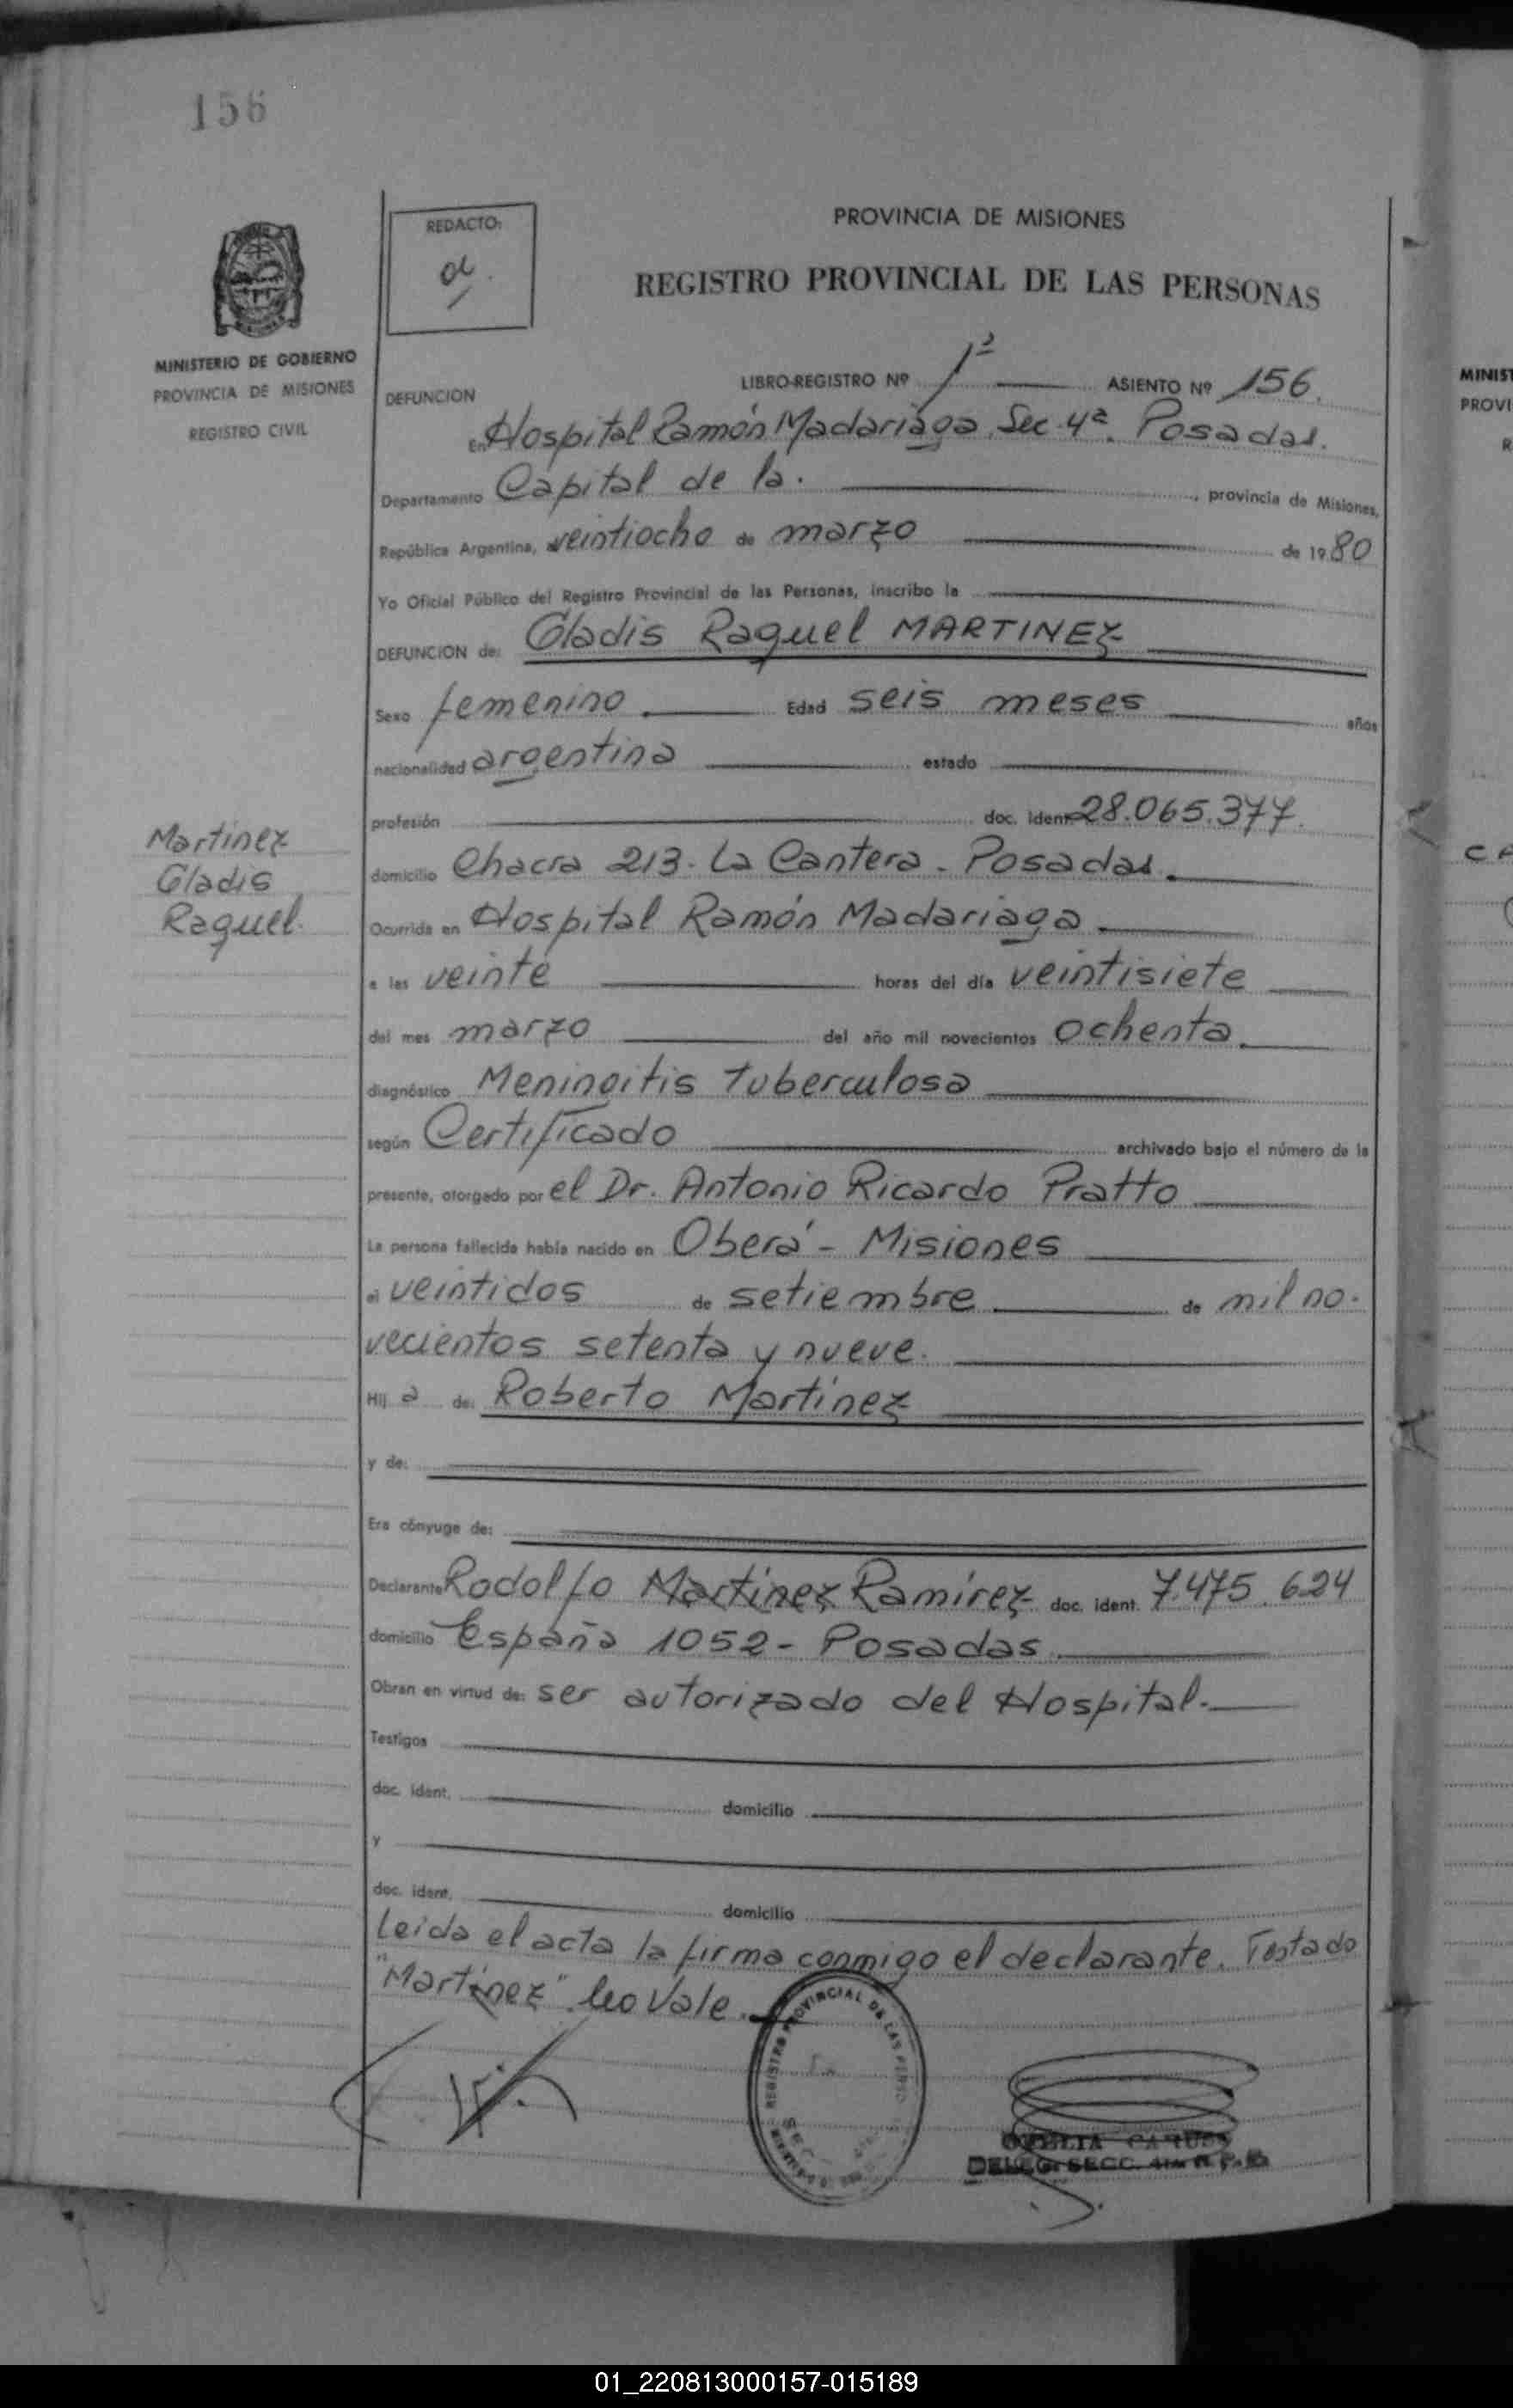 156
REDACTO:
PROVINCIA DE MISIONES
REGISTRO PROVINCIAL DE LAS PERSONAS
MINISTERIO DE GOBIERNO
PROVINCIA DE MISIONES
REGISTRO CIVIL
DEFUNCION LIBRO-REGISTRO Nº 1º ASIENTO Nº 156.
En Hospital Ramón Madariaga, Sec. 4ª. Posadas.
Departamento Capital de la. , provincia de Misiones,
República Argentina, a veintiocho de marzo de 1980
Yo Oficial Público del Registro Provincial de las Personas, inscribo la
DEFUNCION de: Gladis Raquel MARTINEZ
Sexo femenino Edad seis meses años
nacionalidad argentina estado
profesión doc. ident. 28.065.377.
Martinez
Gladis
Raquel.
domicilio Chacra 213. La Cantera - Posadas.
Ocurrida en Hospital Ramón Madariaga
a las veinte horas del día veintisiete
del mes marzo del año mil novecientos ochenta.
diagnóstico Meningitis tuberculosa
según Certificado archivado bajo el número de la
presente, otorgado por el Dr. Antonio Ricardo Pratto
La persona fallecida había nacido en Oberá - Misiones
el veintidos de setiembre de mil no-
vecientos setenta y nueve.
Hij a de: Roberto Martinez
y de:
Era cónyuge de:
Declarante Rodolfo Martinez Ramirez doc. ident. 7.475.624
domicilio España 1052 - Posadas.
Obran en virtud de: ser autorizado del Hospital.
Testigos
doc. ident. domicilio
y
doc. ident. domicilio
Leida el acta la firma conmigo el declarante. Testado
"Martinez" No Vale.
REGISTRO PROVINCIAL DE LAS
DELEG. SECC. 4ta
MINIST
PROVI
01_220813000157-015189